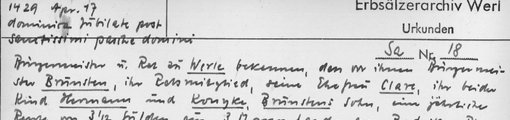 1429 Apr. 17
dominica Jubilate post
sanctissimi pasche domini
Erbsälzerarchiv Werl
Urkunden
Sa Nr. 18
Bürgermeister u. Rat zu Werle bekennen, dass vor ihnen Bürgermei-
ster Brünsten, ihr Ratsmitglied, seine Ehefrau Clare, ihr beider
Kind Hermann und Konyke, Brünstens Sohn, eine jährliche
Rente von 3 1/2 Gulden